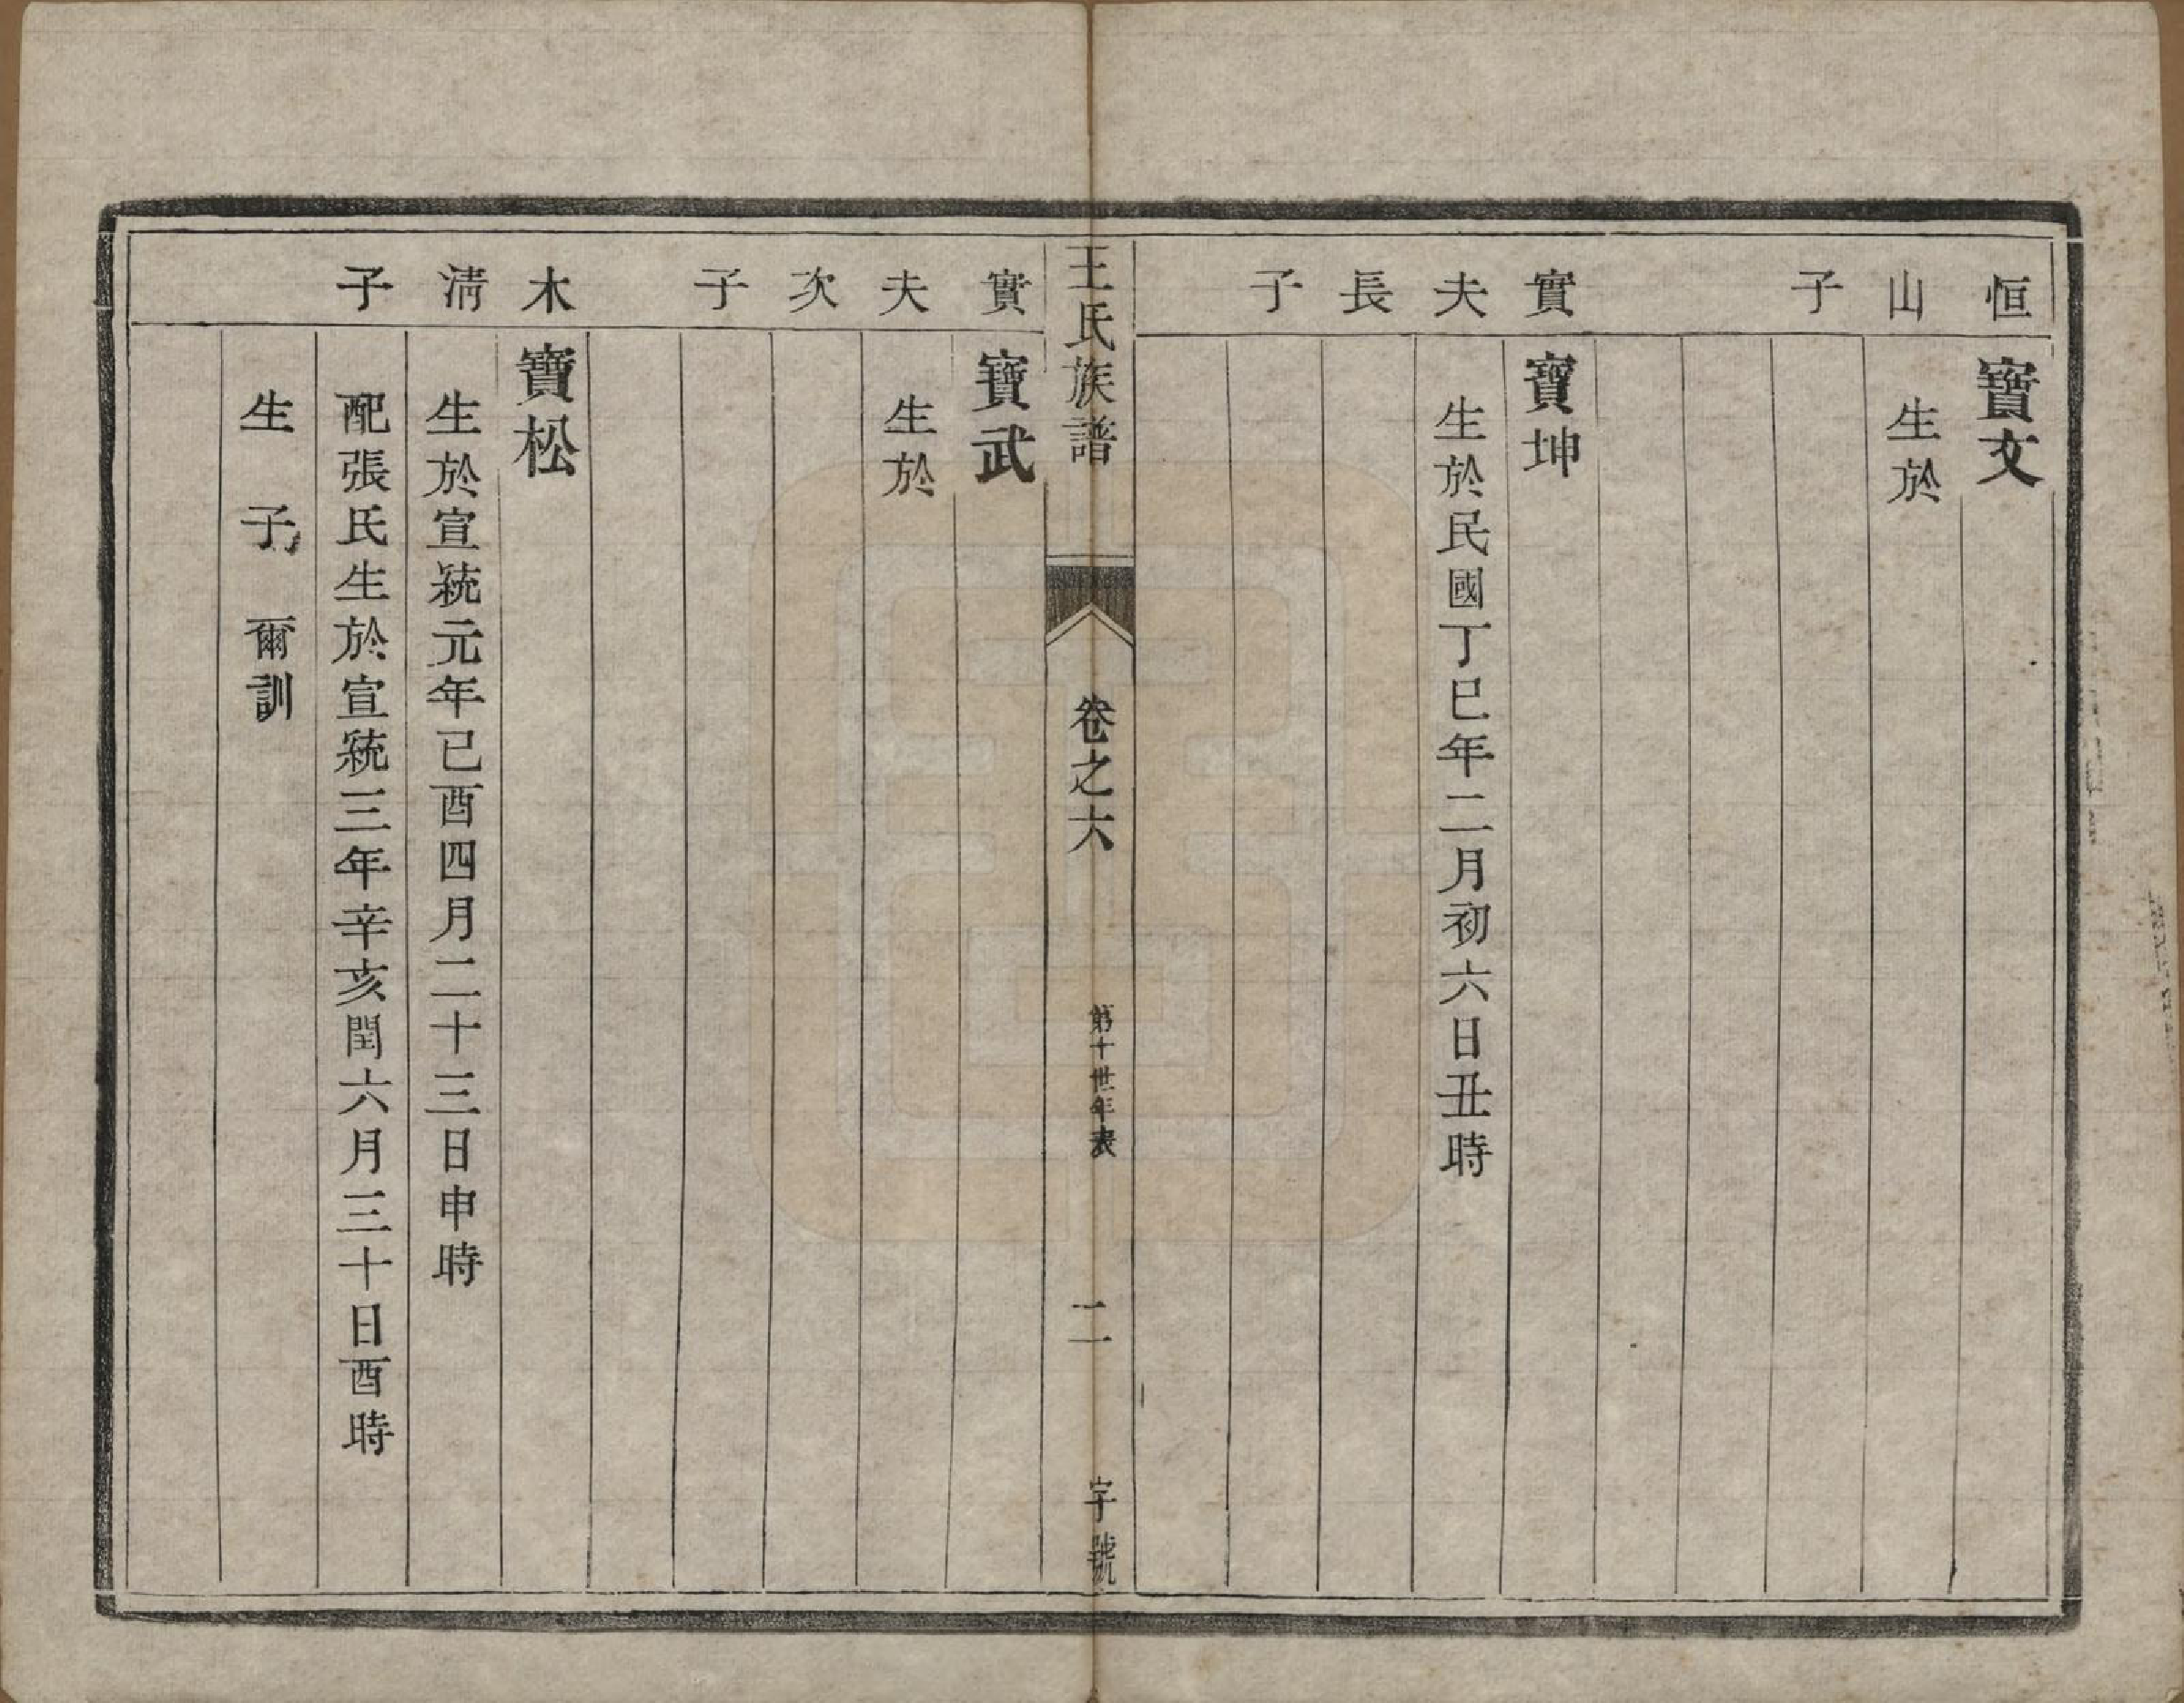 恒山子
寶文
生於
實夫長子
寶坤
生於民國丁巳年二月初六日丑時
王氏族譜
卷之六
第十世年表
二
字號
實夫次子
寶武
生於
木清子
寶松
生於宣統元年己酉四月二十三日申時
配張氏生於宣統三年辛亥閏六月三十日酉時
生子 爾訓